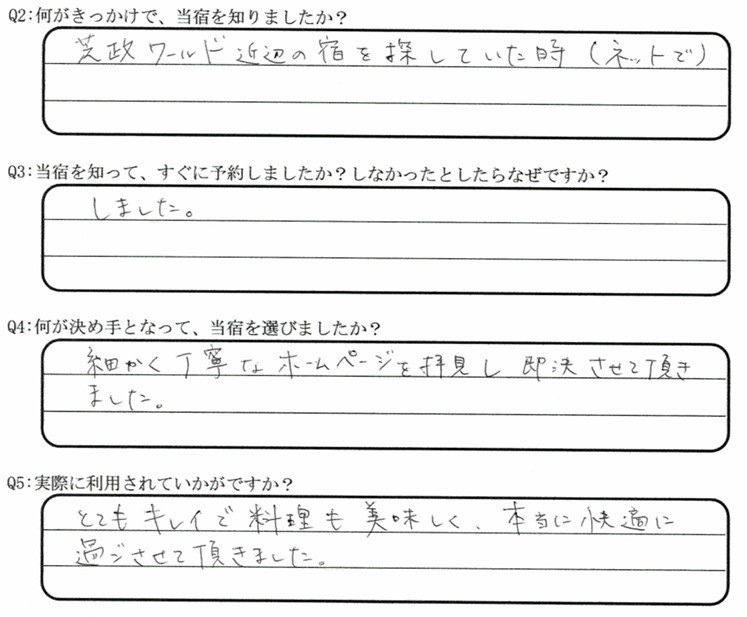 Q2:何がきっかけで、当宿を知りましたか？
芝政ワールド近辺の宿を探していた時（ネットで）
Q3:当宿を知って、すぐに予約しましたか？しなかったとしたらなぜですか？
しました。
Q4:何が決め手となって、当宿を選びましたか？
細かく丁寧なホームページを拝見し即決させて頂き
ました。
Q5:実際に利用されていかがですか？
とてもキレイで料理も美味しく、本当に快適に
過ごさせて頂きました。